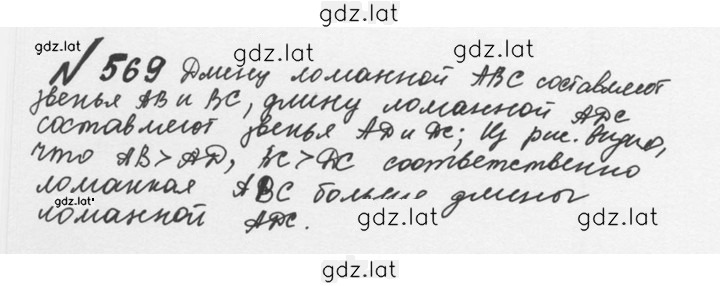 gdz.lat
gdz.lat gdz.lat gdz.lat
№ 569 Длину ломанной ABC составляют
звенья AB и BC, длину ломанной ADC
составляют звенья AD и DC; Из рис. видно,
что AB > AD, BC > DC соответственно
ломанная ABC больше длины
ломанной ADC.
gdz.lat gdz.lat gdz.lat
gdz.lat